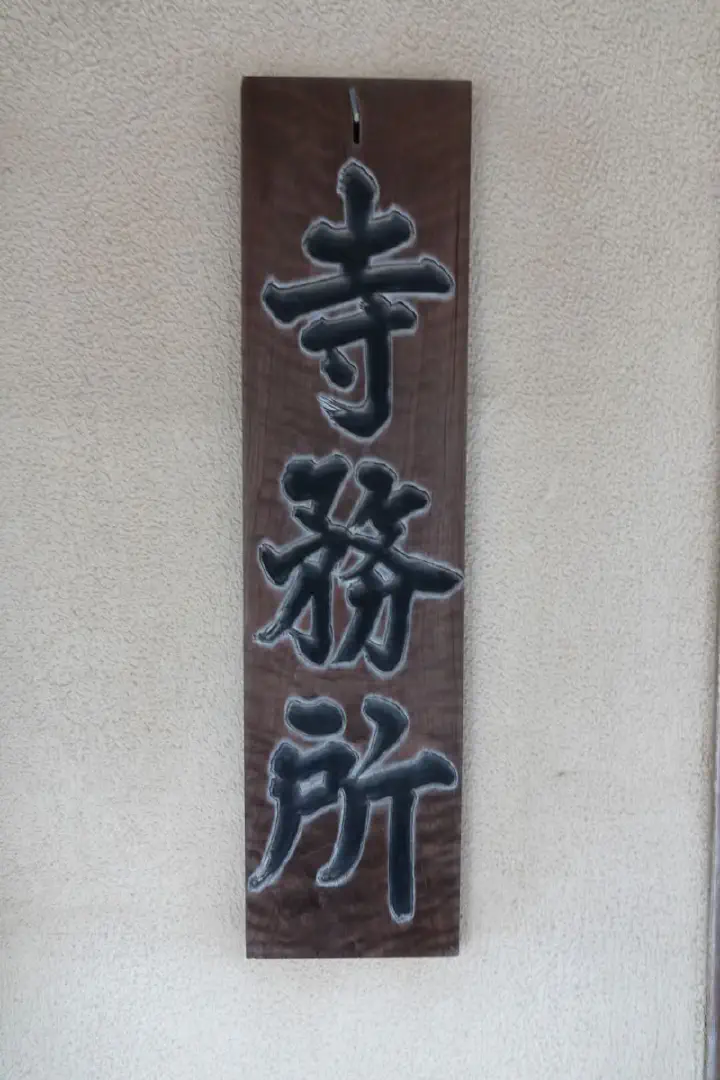 寺務所